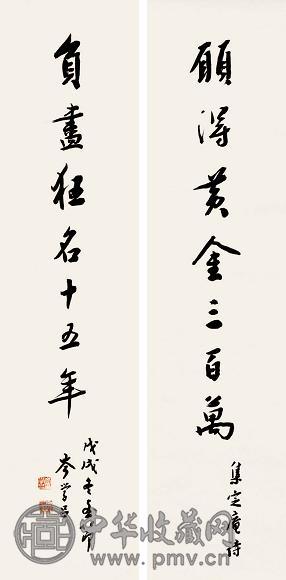 願得黄金三百萬
集定庵詩
負盡狂名十五年
戊戌冬
岑学吕
中华收藏网
www.pmv.cn